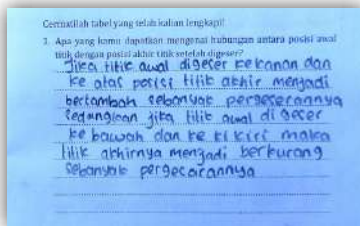 Cermatilah tabel yang telah kalian lengkapi!
1. Apa yang kamu dapatkan mengenai hubungan antara posisi awal
titik dengan posisi akhir titik setelah digeser?
Jika titik awal digeser kekanan dan
ke atas posisi titik akhir menjadi
bertambah sebanyak pergeserannya
sedangkan jika titik awal di geser
ke bawah dan ke kikiri maka
titik akhirnya menjadi berkurang
sebanyak pergeserannya